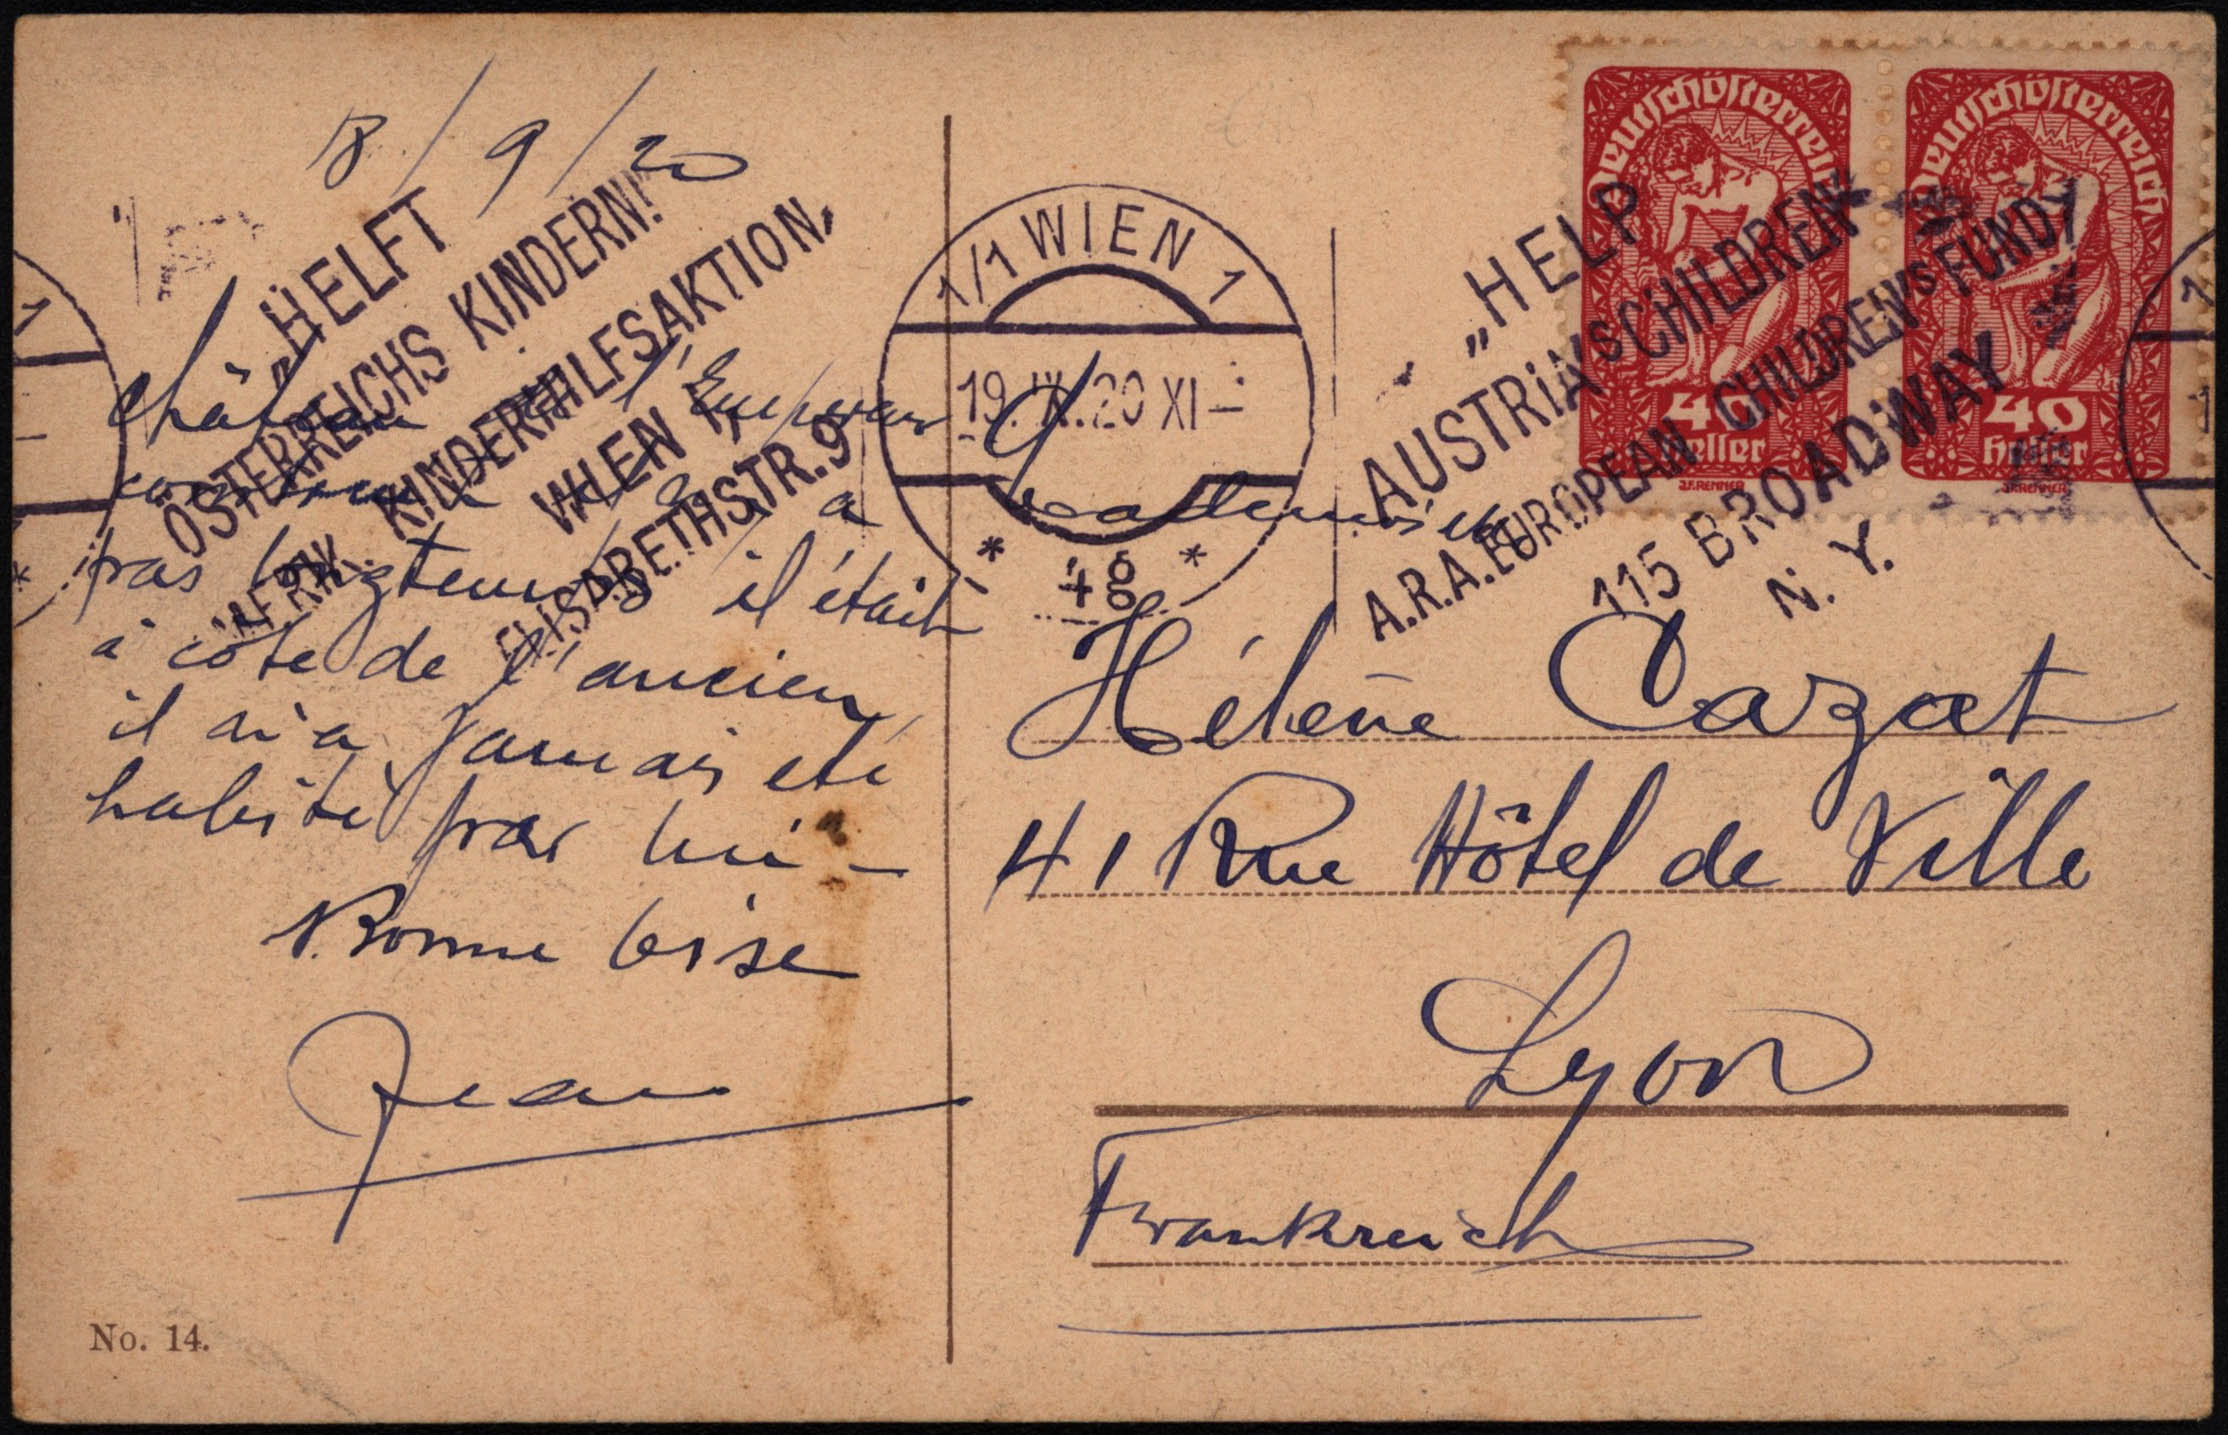 8/9/20
„HELFT
ÖSTERREICHS KINDERN!"
AMERIK. KINDERHILFSAKTION,
WIEN
ELISABETHSTR. 9
Château de l'Empereur
construit il y a
pas longtemps il était
à côté de l'ancien
il n'a jamais été
habité par lui –
Bonne bise
Jean
No. 14.
1/1 WIEN 1
19. IX. 20 XI
* 4g *
„HELP
AUSTRIA'S CHILDREN"
A.R.A. EUROPEAN CHILDREN'S FUND
115 BROADWAY
N. Y.
Deutschösterreich
40
Heller
J.F.RENNER
Deutschösterreich
40
Heller
J.F.RENNER
Hélène Cazat
41 Rue Hôtel de Ville
Lyon
Frankreich